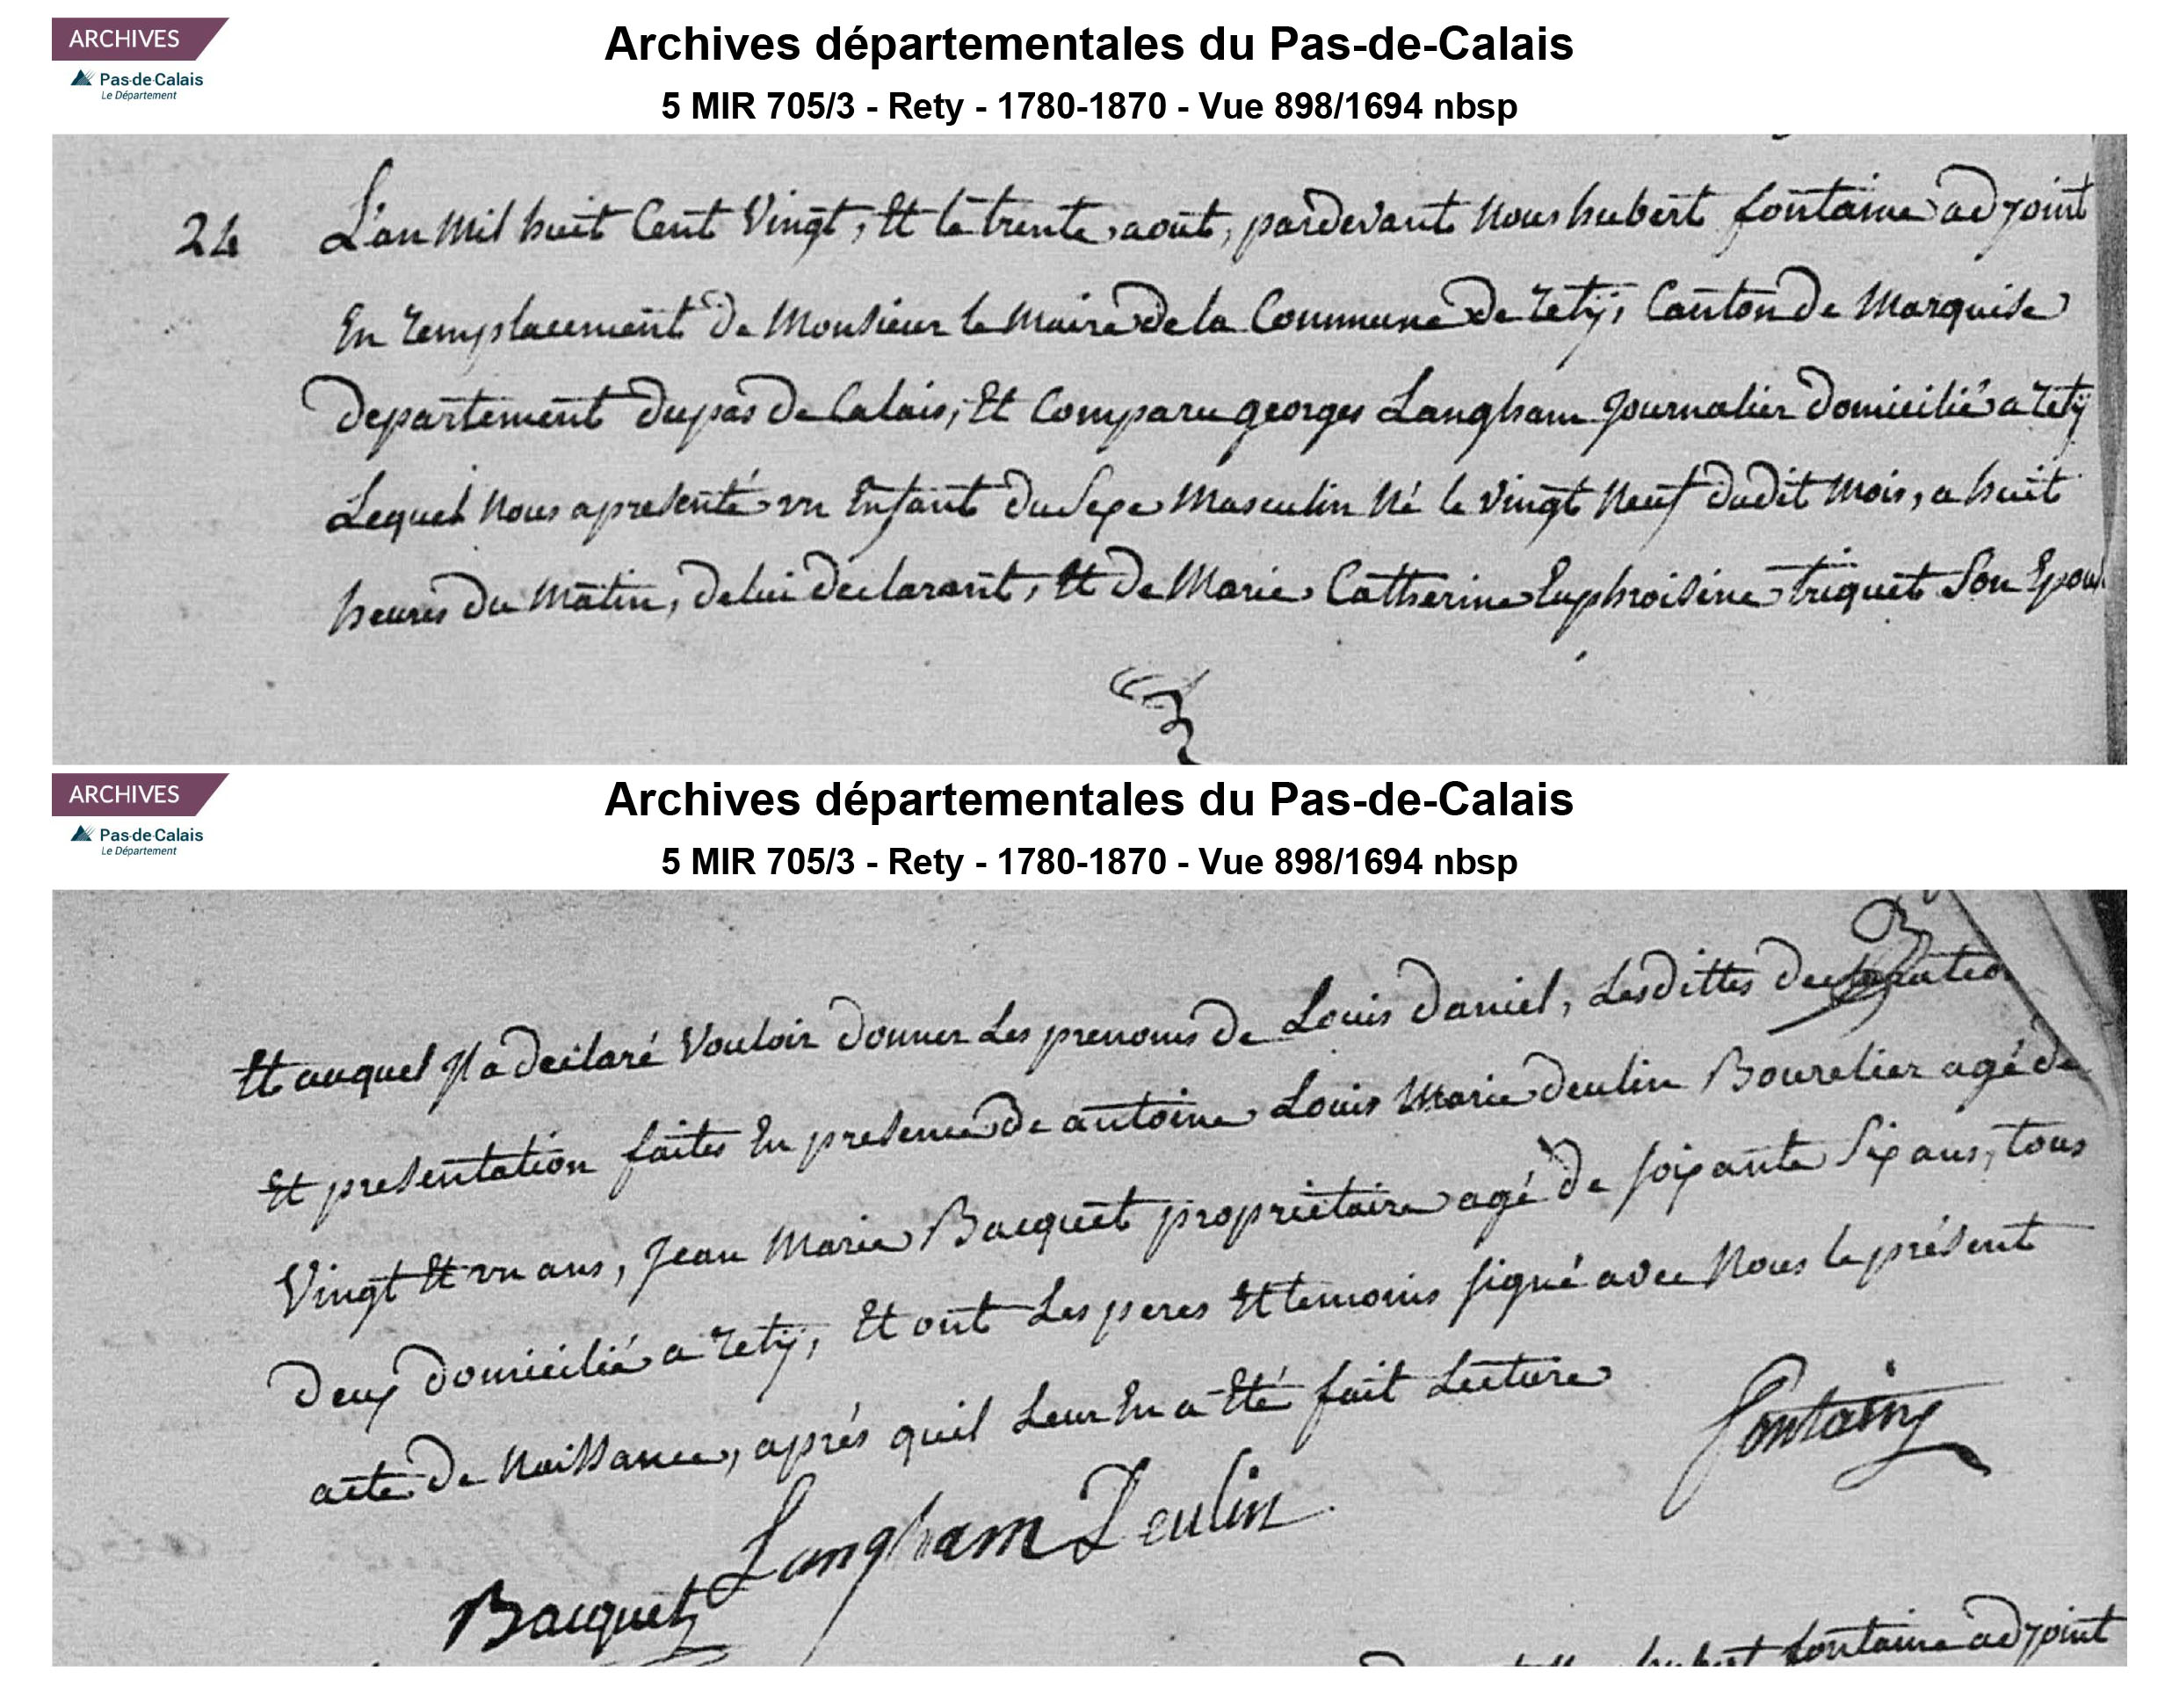 ARCHIVES
Pas-de-Calais
Le Département
Archives départementales du Pas-de-Calais
5 MIR 705/3 - Rety - 1780-1870 - Vue 898/1694 nbsp
24
L'an Mil huit Cent Vingt, Et le trente aout, pardevant Nous hubert fontaine adjoint
En remplacement de Monsieur le Maire de la Commune de rety, Canton de Marquise
departement du pas de Calais, Et Comparu georges Langham Journalier domicilié a rety
Lequel Nous a presenté un Enfant du Sexe Masculin Né le Vingt Neuf dudit Mois, a huit
heures du Matin, de lui declarant, Et de Marie Catherine Euphroisine triquet Son Epous
ARCHIVES
Pas-de-Calais
Le Département
Archives départementales du Pas-de-Calais
5 MIR 705/3 - Rety - 1780-1870 - Vue 898/1694 nbsp
Et auquel Il a declaré Vouloir donner Les prenoms de Louis daniel, Lesdittes declaratio
Et presentation faites En presence de antoine Louis Marie deulin Bourelier agé de
Vingt Et un ans, Jean Marie Bacquet proprietaire agé de soixante Six ans, tous
deux domicilié a rety, Et ont Les peres Et temoins signé avec Nous le présent
acte de Naissance, aprés quil Leur En a Eté fait Lecture
fontaine
Langham Deulin
Bacquet
hubert fontaine adjoint